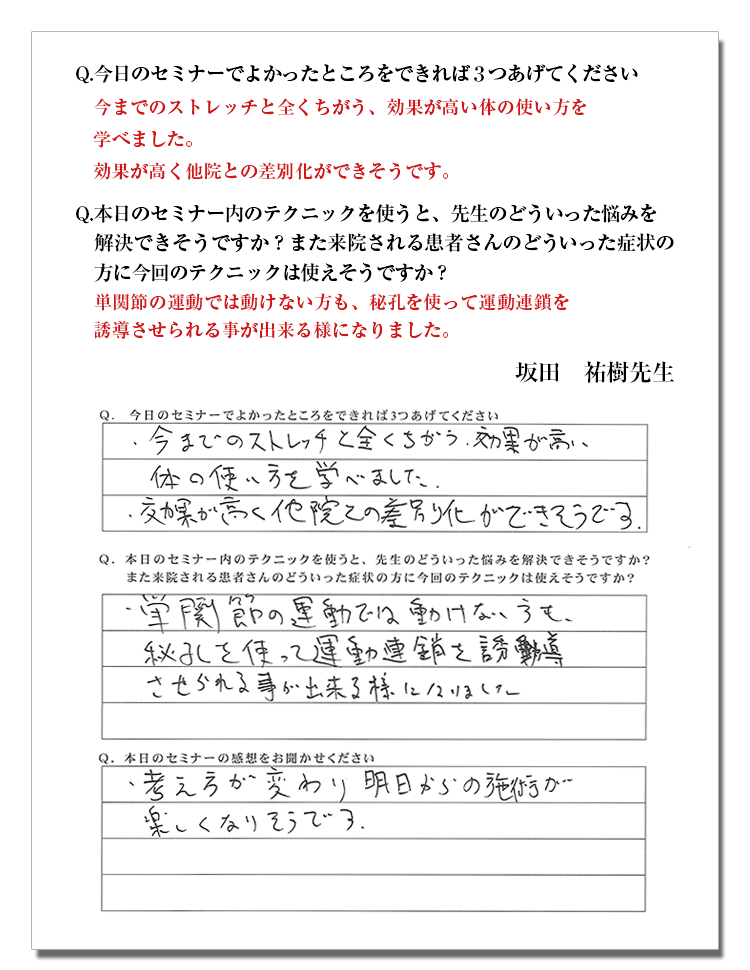 Q.今日のセミナーでよかったところをできれば３つあげてください
今までのストレッチと全くちがう、効果が高い体の使い方を
学べました。
効果が高く他院との差別化ができそうです。
Q.本日のセミナー内のテクニックを使うと、先生のどういった悩みを
解決できそうですか？また来院される患者さんのどういった症状の
方に今回のテクニックは使えそうですか？
単関節の運動では動けない方も、秘孔を使って運動連鎖を
誘導させられる事が出来る様になりました。
坂田　祐樹先生
Q. 今日のセミナーでよかったところをできれば3つあげてください
・今までのストレッチと全くちがう、効果が高い
体の使い方を学べました。
・効果が高く他院との差別化ができそうです。
Q. 本日のセミナー内のテクニックを使うと、先生のどういった悩みを解決できそうですか？
また来院される患者さんのどういった症状の方に今回のテクニックは使えそうですか？
・単関節の運動では動けない方も、
秘孔を使って運動連鎖を誘導
させられる事が出来る様になりました
Q. 本日のセミナーの感想をお聞かせください
・考え方が変わり明日からの施術が
楽しくなりそうです。